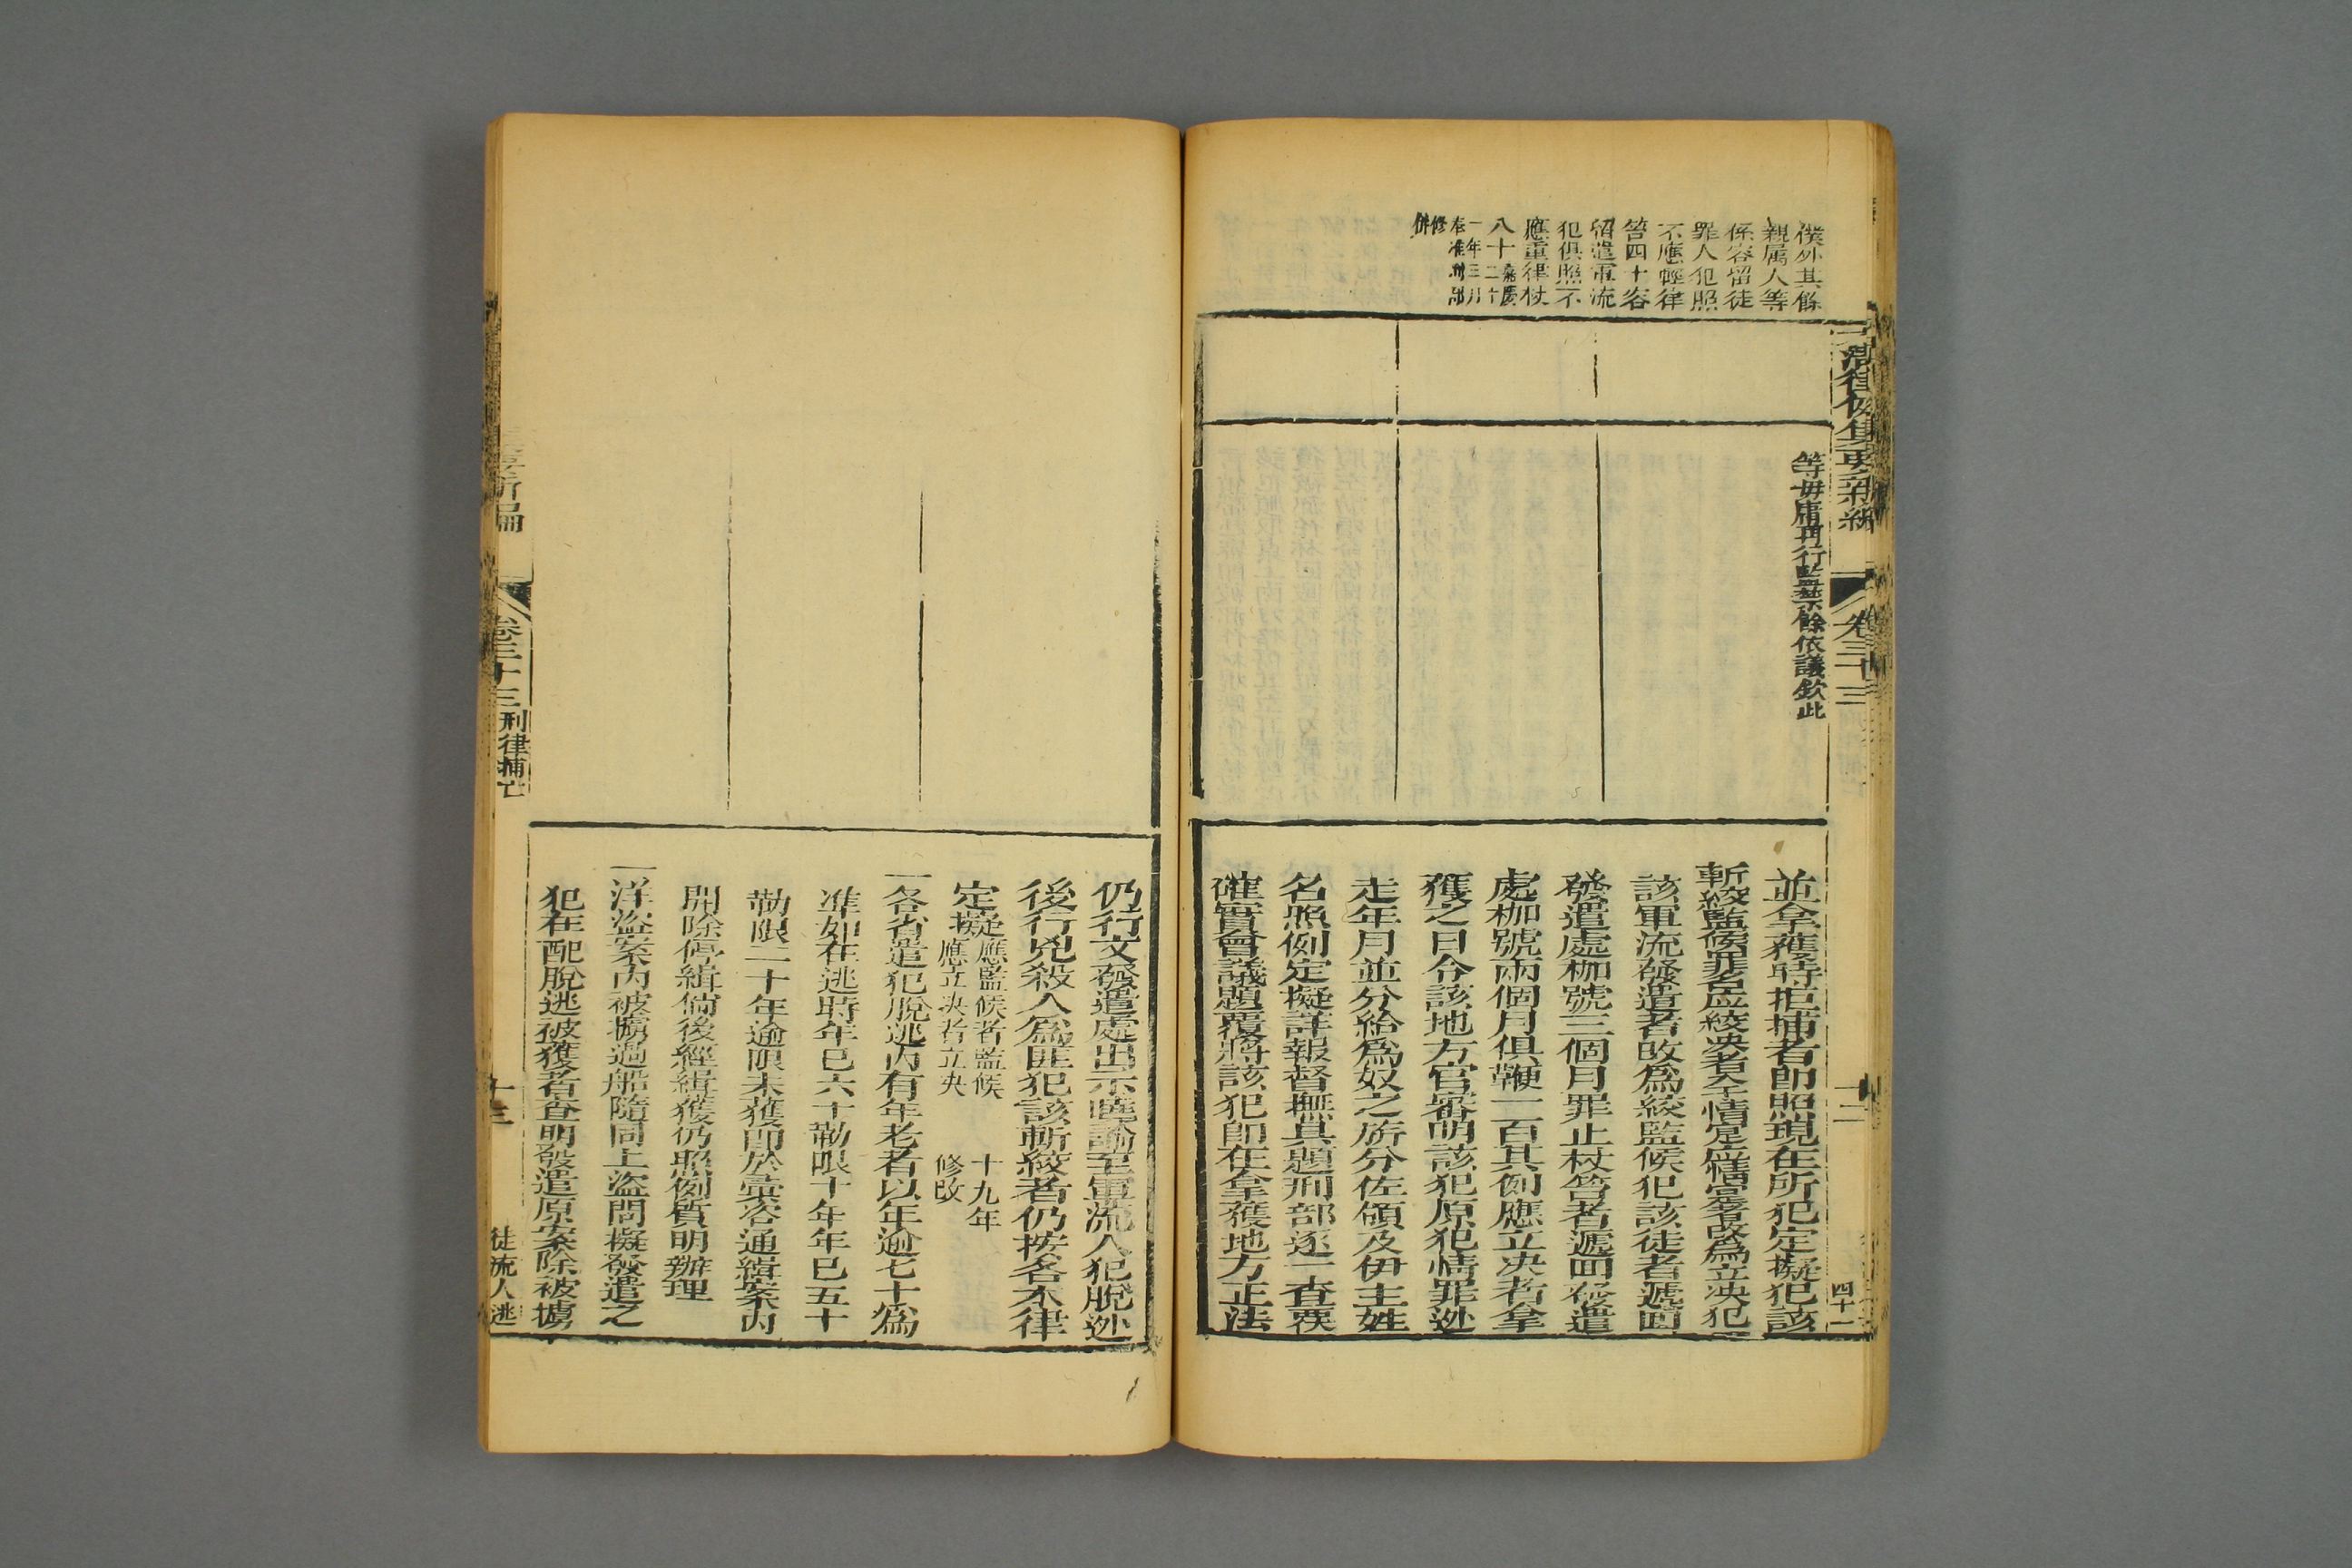 僕外其餘
親属人等
係容留徒
罪人犯照
不應輕律
笞四十容
留遣軍流
犯俱照不
應重律杖
八十嘉慶二十
一年三月
奉准刑部
修
併
大清律例集要新編
卷三十三
四十一
等毋庸再行監禁餘依議欽此
並拿獲時拒捕者卽照現在所犯定擬犯該
斬絞監候罪名應絞決者全情定應情實者改為立決犯
該軍流發遣者改為絞監候犯該徒者遞回
發遣處枷號三個月罪止杖笞者遞回發遣
處枷號兩個月俱鞭一百其例應立決者拿
獲之日令該地方官審明該犯原犯情罪迯
走年月並分給為奴之所分佐領及伊主姓
名照例定擬詳報督撫具題刑部逐一查覈
確實會議題覆將該犯卽在拿獲地方正法
仍行文發遣處出示曉諭至軍流人犯脫迯
後行兇殺人為匪犯該斬絞者仍按各本律
定擬應監候者監候應立決者立決 十九年修改
一各省遣犯脫逃內有年老者以年逾七十為
準如在逃時年已六十勒限十年年已五十
勒限二十年逾限未獲卽於彙咨通緝案內
開除停緝倘後經緝獲仍照例質明辦理
一洋盜案內被擄過船隨同上盜問擬發遣之
犯在配脫逃被獲者查明發遣原案除被擄
要新編
卷三十三
刑律捕亡
徒流人逃